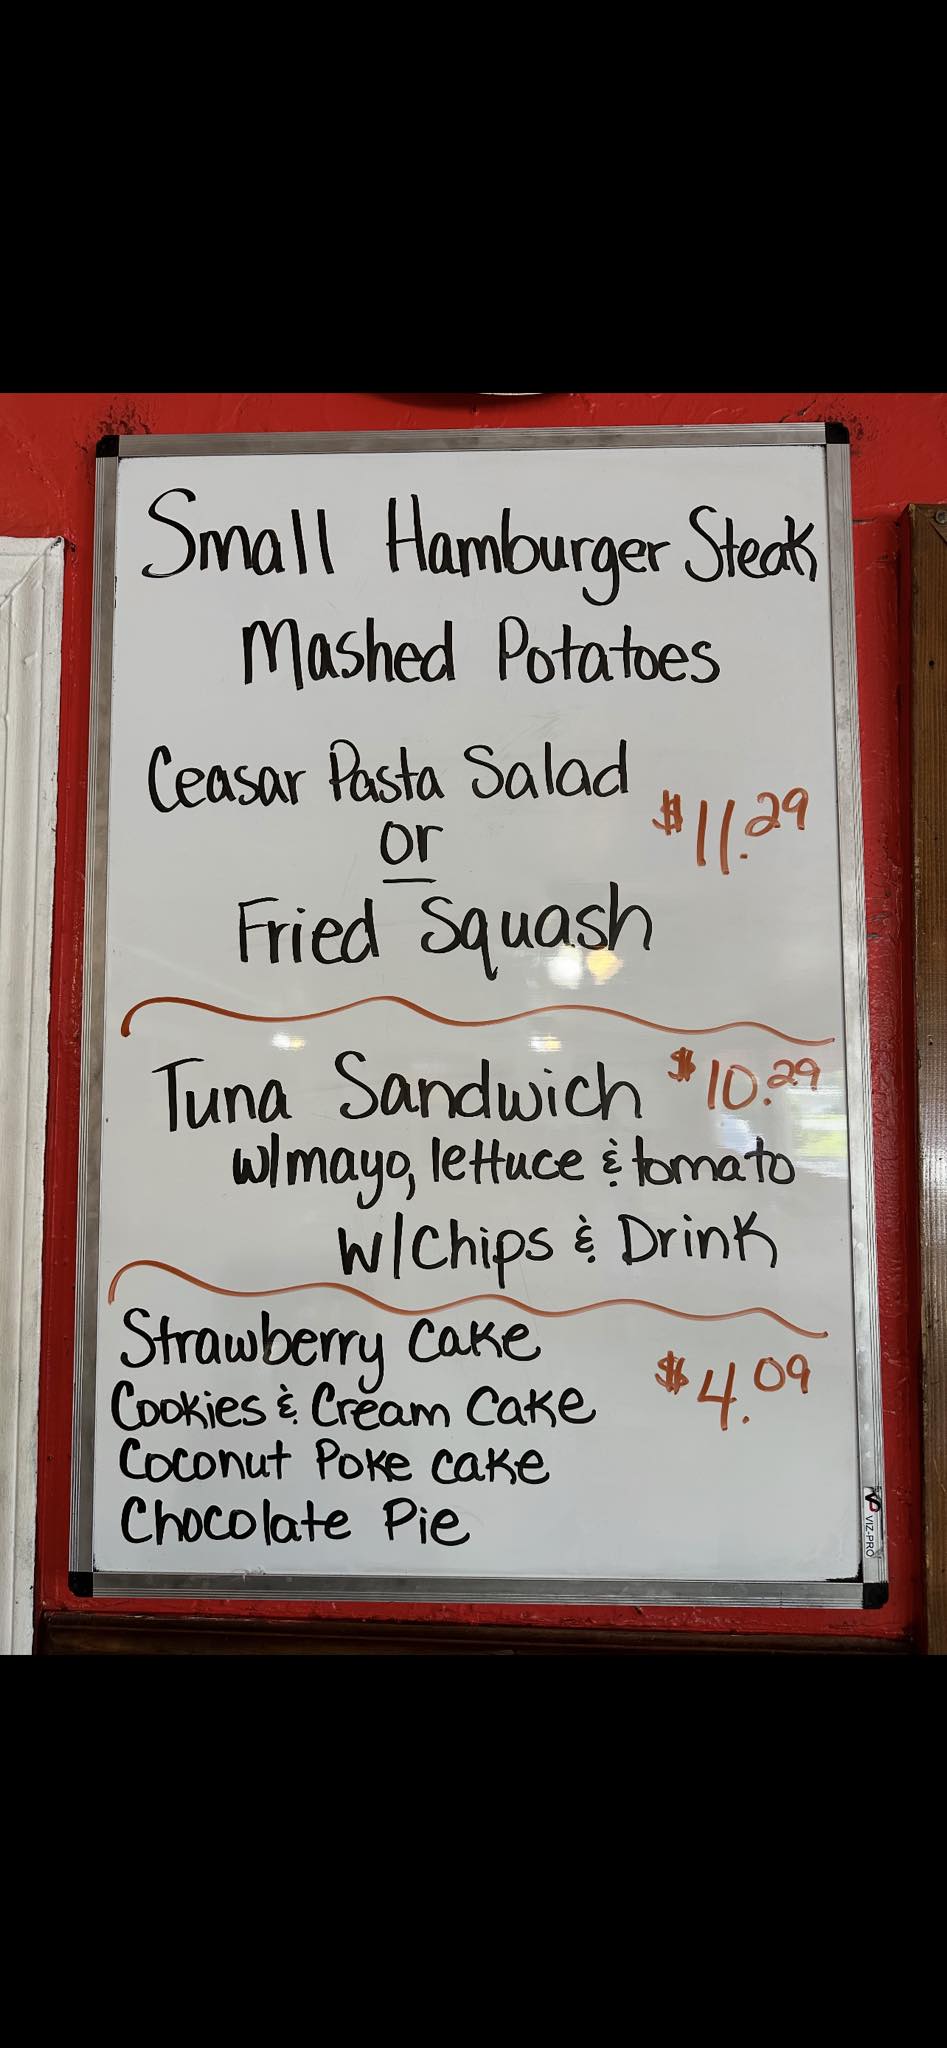 Small Hamburger Steak
Mashed Potatoes
Ceasar Pasta Salad
or
Fried Squash
$11.29
Tuna Sandwich $10.29
w/mayo, lettuce & tomato
w/Chips & Drink
Strawberry Cake
Cookies & Cream Cake
$4.09
Coconut Poke Cake
Chocolate Pie
VIZ-PRO